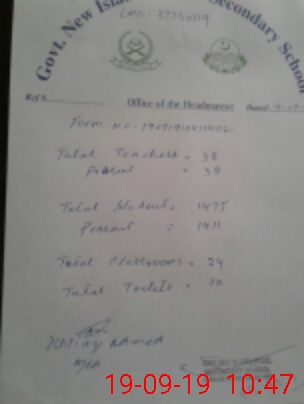 Govt. New Isla Secondary School
Ref #
Office of the Headmaster
Dated
Form No.
Total Teachers = 38
Present = 38
Total Students = 1475
Present = 1411
Total Classrooms = 24
Total Toilets = 10
Ishtiaq Ahmed
MEA
19-09-19 10:47